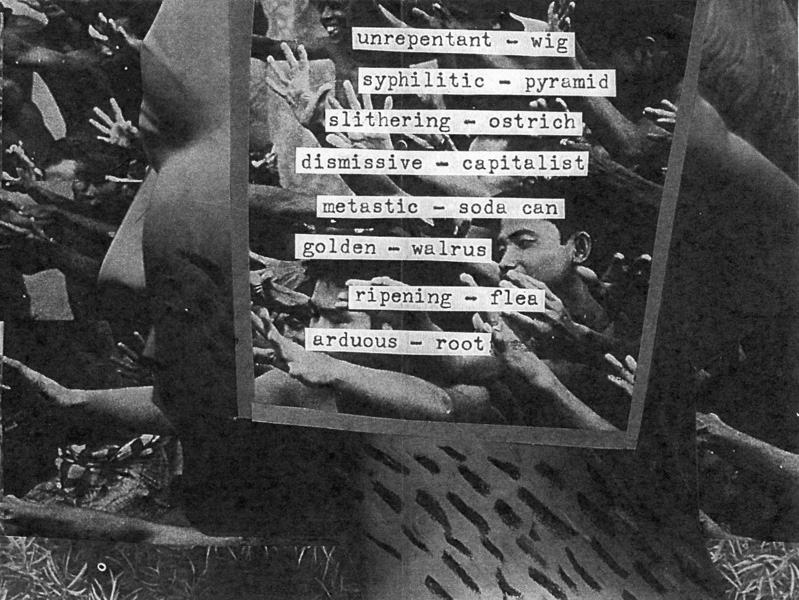 unrepentant - wig
syphilitic - pyramid
slithering - ostrich
dismissive - capitalist
metastic - soda can
golden - walrus
ripening - flea
arduous - root